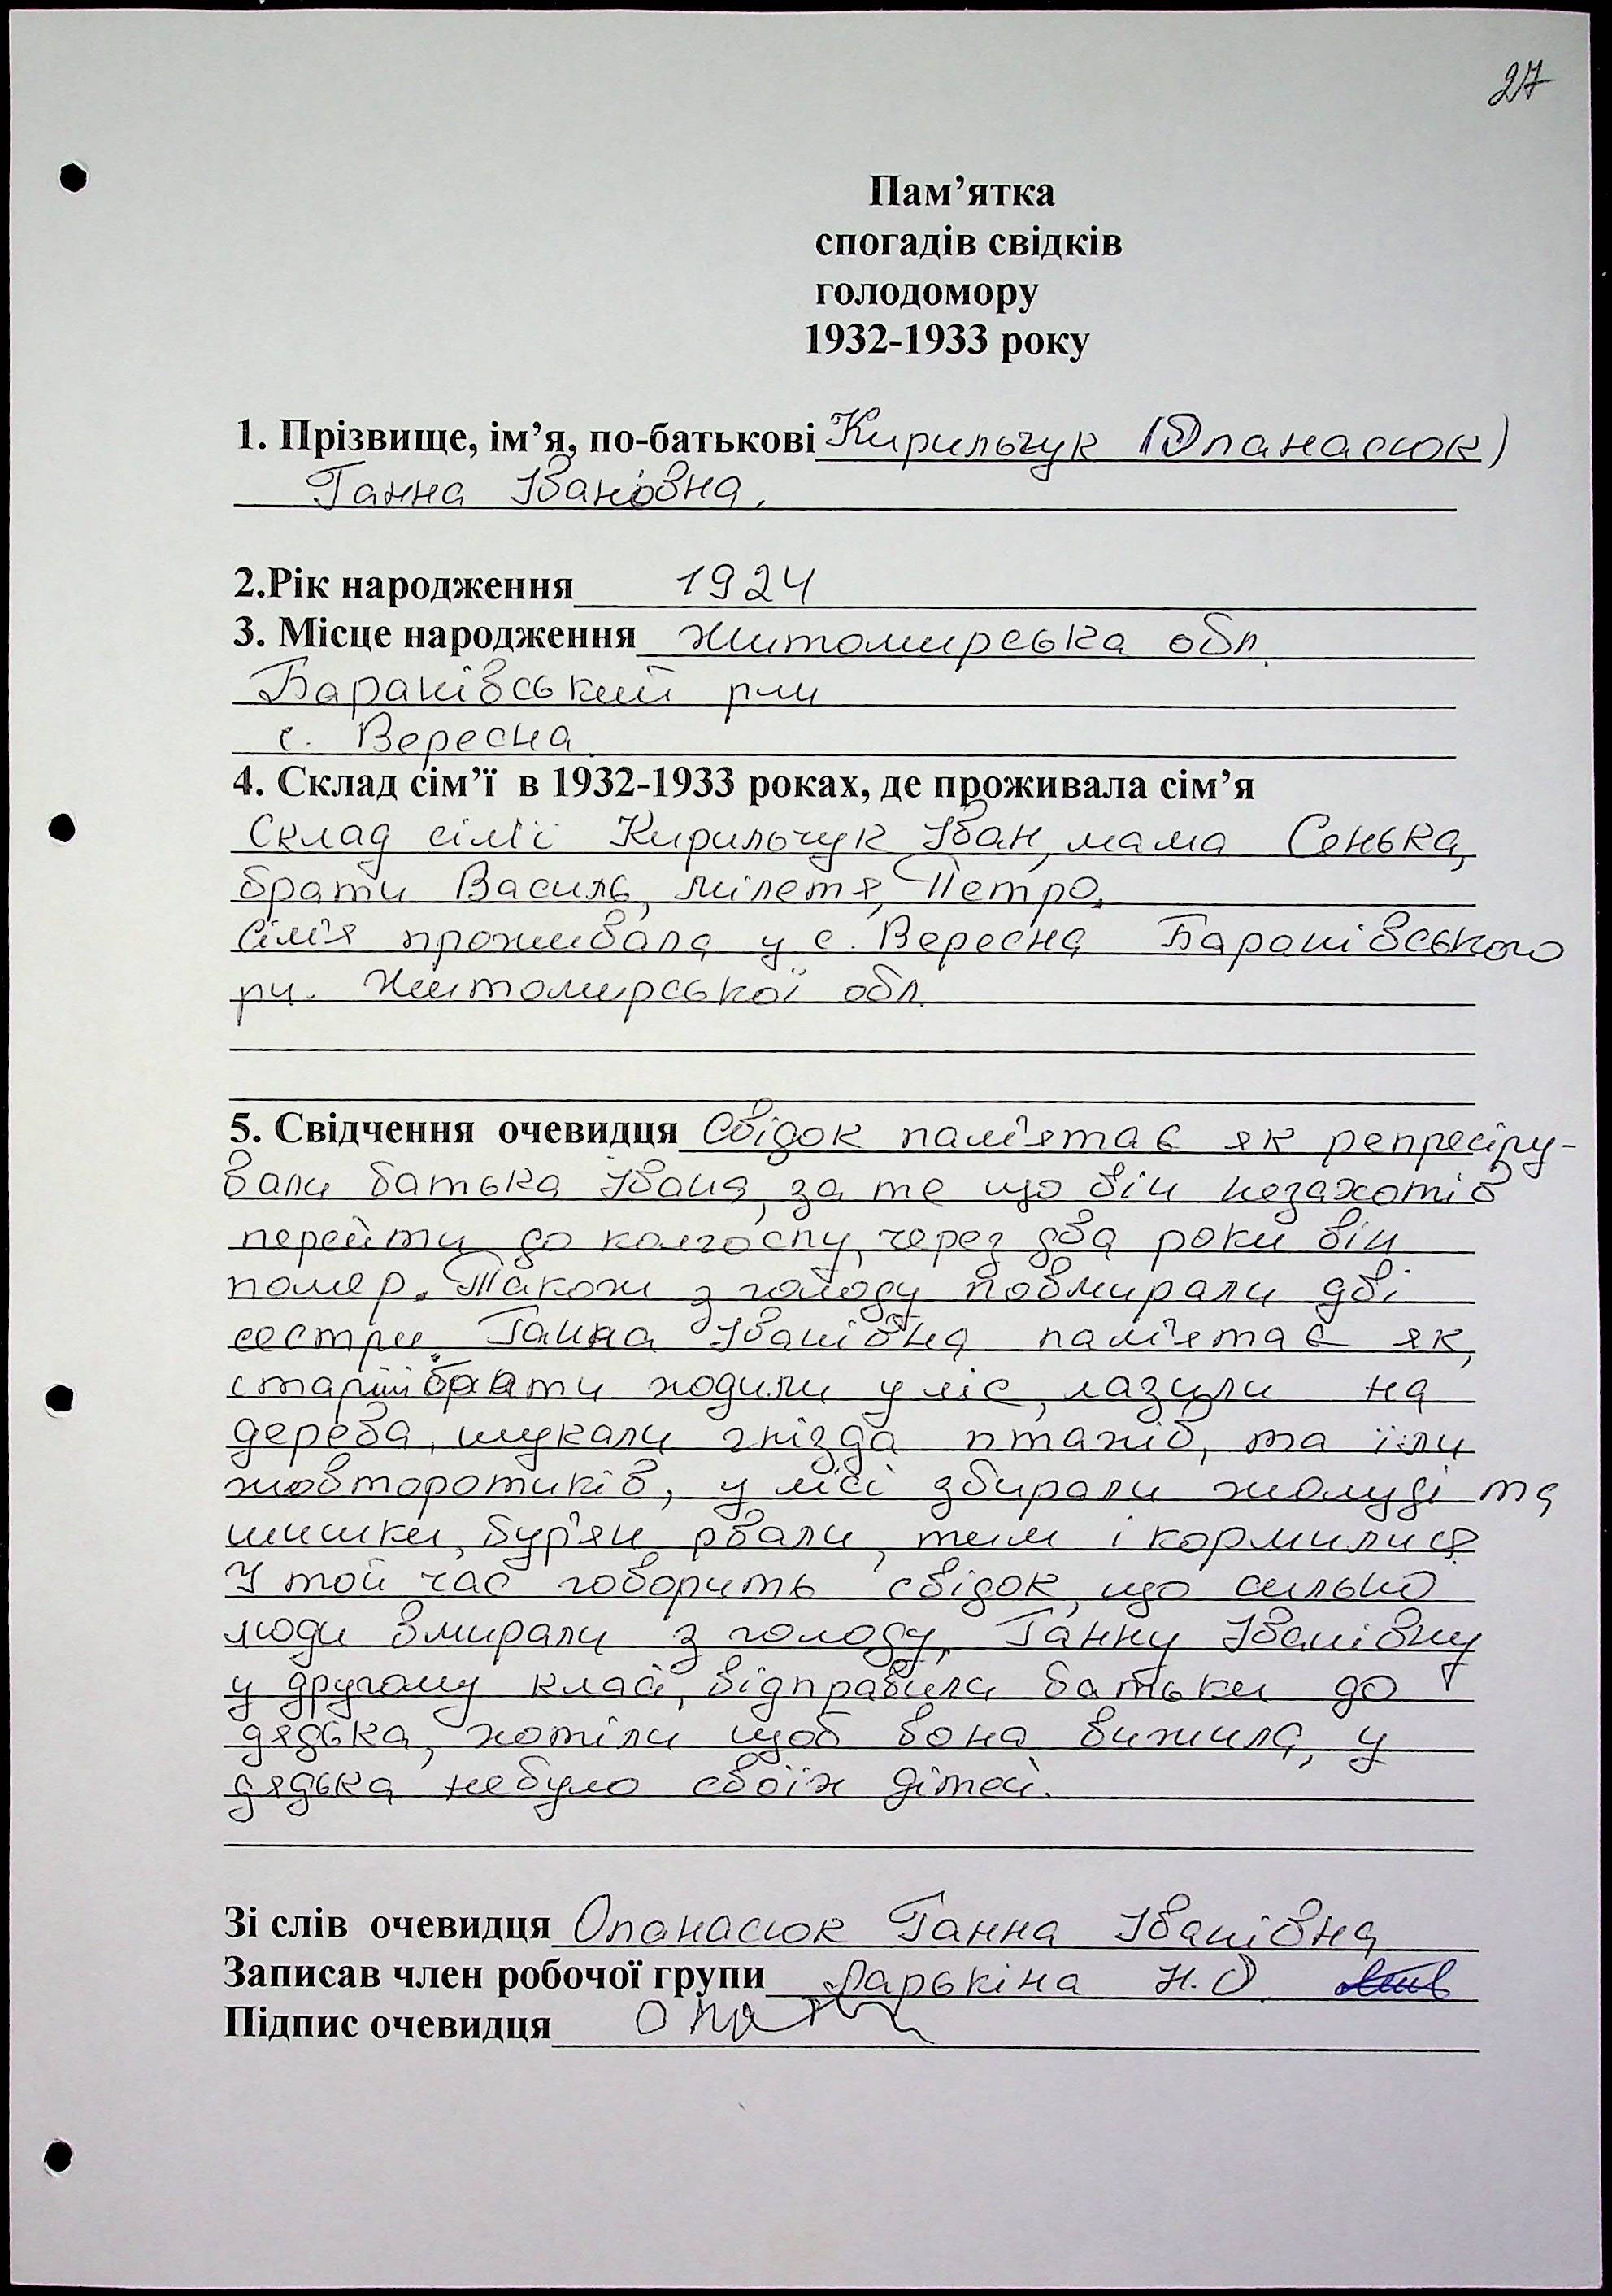 27
Пам’ятка
спогадів свідків
голодомору
1932-1933 року
1. Прізвище, ім’я, по-батькові Кирильчук (Опанасюк)
Ганна Івановна,
2.Рік народження 1924
3. Місце народження Житомирська обл.
Баранівський р-н
с. Вересна
4. Склад сім’ї в 1932-1933 роках, де проживала сім’я
Склад сім'ї Кирильчук Іван, мама Сенька,
брати Василь, Мілетя, Петро.
Сім'я проживала у с. Вересна Баранівського
рн. Житомирської обл.
5. Свідчення очевидця Свідок пам'ятає як репресіру-
вали батька Івана, за те що він незахотів
перейти до колгоспу, через два роки він
помер. Також з голоду повмирали дві
сестри. Ганна Іванівна пам'ятає як,
старші брати ходили у ліс, лазили на
дерева, шукали гнізда птахів, та їли
жовторотиків, у лісі збирали жолуді та
шишки, бур'ян рвали, тим і кормилися.
У той час говорить свідок, що сильно
люди вмирали з голоду, Ганну Іванівну
у другому класі, відправили батьки до
дядька, хотіли щоб вона вижила, у
дядька небуло своїх дітей.
Зі слів очевидця Опанасюк Ганна Іванівна
Записав член робочої групи Ларькіна Н.О.
Підпис очевидця